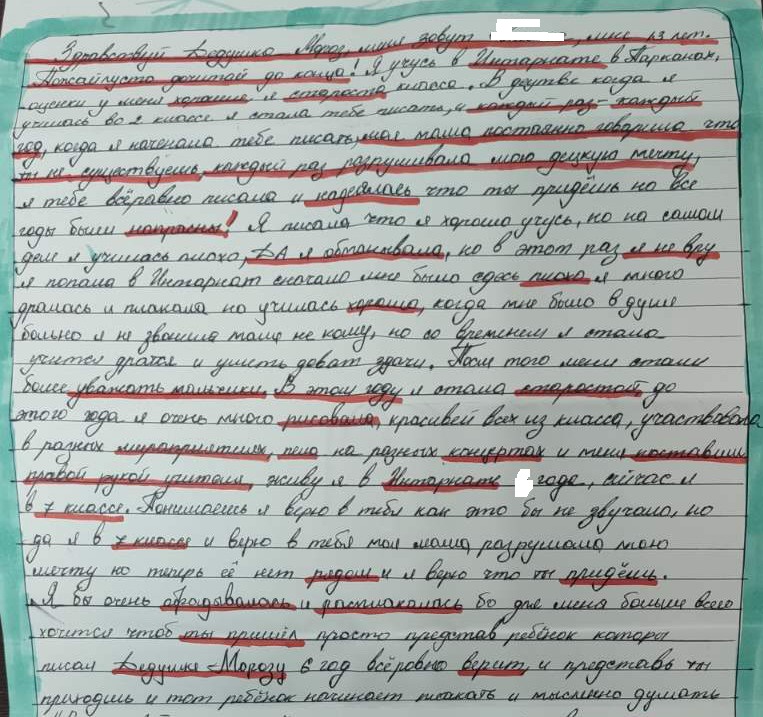 Здравствуй Дедушка Мороз, меня зовут , мне 13 лет.
Пожайлуста дочитай до конца! Я учусь в Интарнате в Парканах,
оценки у меня хорошие я староста класса. В децтве когда я
училась во 2 классе я стала тебе писать, и каждый раз- каждый
год, когда я наче­нала тебе писать, моя мама постоянно говорила что
ты не существуешь, каждый раз разрушивала мою децкую мечту,
я тебе всёравно писала и надеелась что ты придёшь но все
годы были напрасны! Я писала что я хорошо учусь, но на самом
деле я училась плохо, ДА я обманывала, но в этот раз я не вру
я попала в Интарнат сначало мне было сдесь плохо я много
дралась и плакала но училась хорошо, когда мне было в душе
больно я не звонила маме не кому, но со временем я стала
учится дратся и уметь доват здачи. Посл того меня стали
более уважать мальчики. В этом году я стала старостой, до
этого года я очень много рисовала, красивей всех из класса, участвовала
в разных мероприятиях, пела на разных концертах и меня поставили
правой рукой учителя, живу я в Интарнате года, сейчас я
в 7 классе. Понимаешь я верю в тебя как это бы не звучало, но
да я в 7 классе и верю в тебя моя мама разрушала мою
мечту но теперь её нет рядом и я верю что ты придёшь.
Я бы очень обрадывалась и расплакалась бо для меня больше всего
хочется чтоб ты пришёл просто представ ребёнок которы
писал Дедушке Морозу 6 год всёровно верит, и представь ты
приходишь и тот ребёнок начинает плакать и мысленно думать